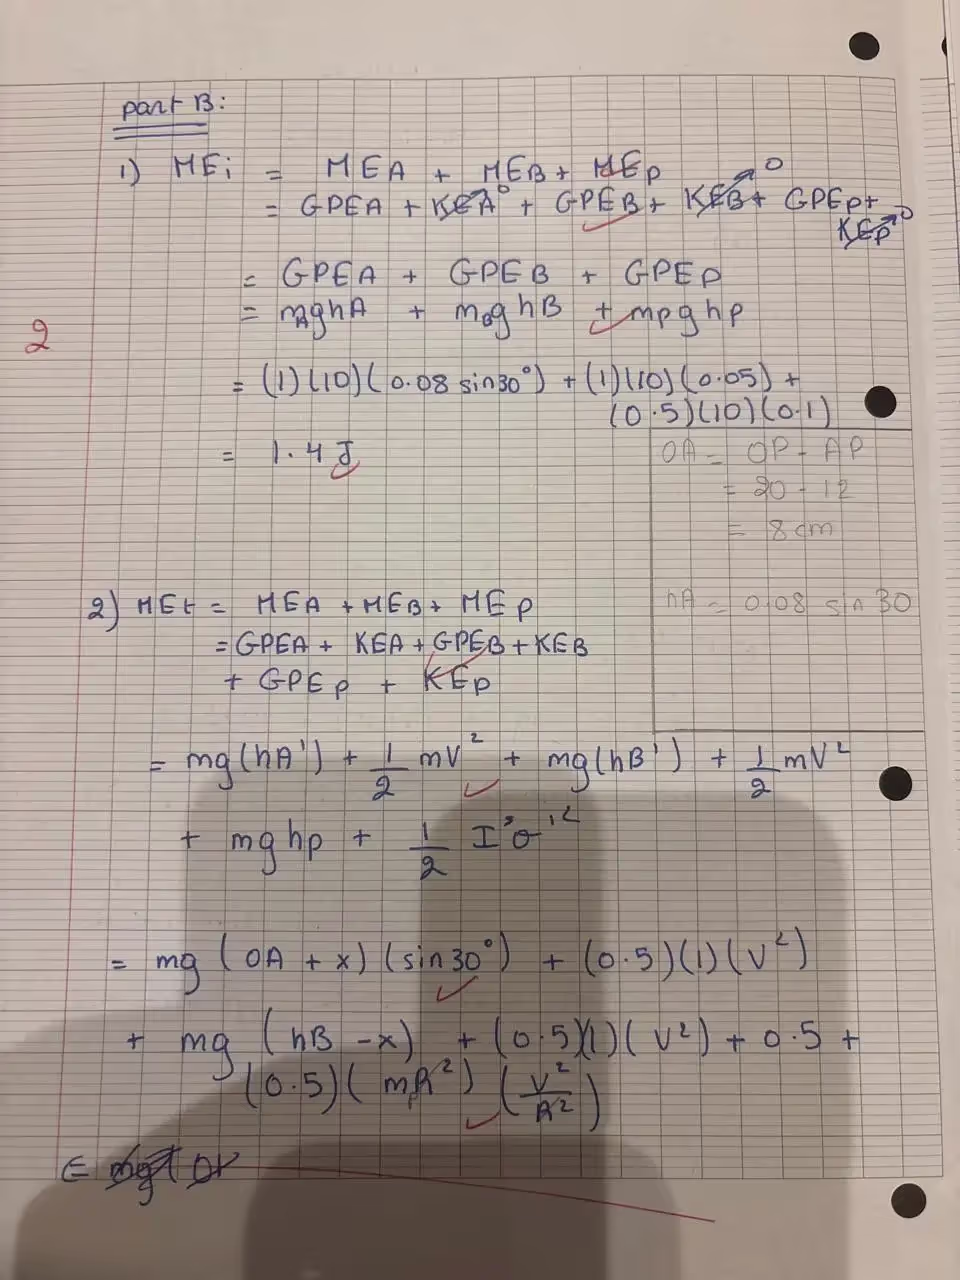 part B:
1) MEi = MEA + MEB + MEp
= GPEA + KEA⁰ + GPEB + KEB⁰ + GPEp +
KEp⁰
= GPEA + GPEB + GPEp
= mAghA + mBghB + mpghp
2
= (1)(10)(0.08 sin30°) + (1)(10)(0.05) +
(0.5)(10)(0.1)
= 1.4 J
OA = OP - AP
= 20 - 12
= 8 cm
hA = 0.08 sin 30
2) MEt = MEA + MEB + MEp
= GPEA + KEA + GPEB + KEB
+ GPEp + KEp
= mg(hA') + 1/2 mV² + mg(hB') + 1/2 mV²
+ mghp + 1/2 I θ'²
= mg (OA + x) (sin30°) + (0.5)(1)(V²)
+ mg (hB - x) + (0.5)(1)(V²) + 0.5 +
(0.5)(mpR²) (V²/R²)
= mg(